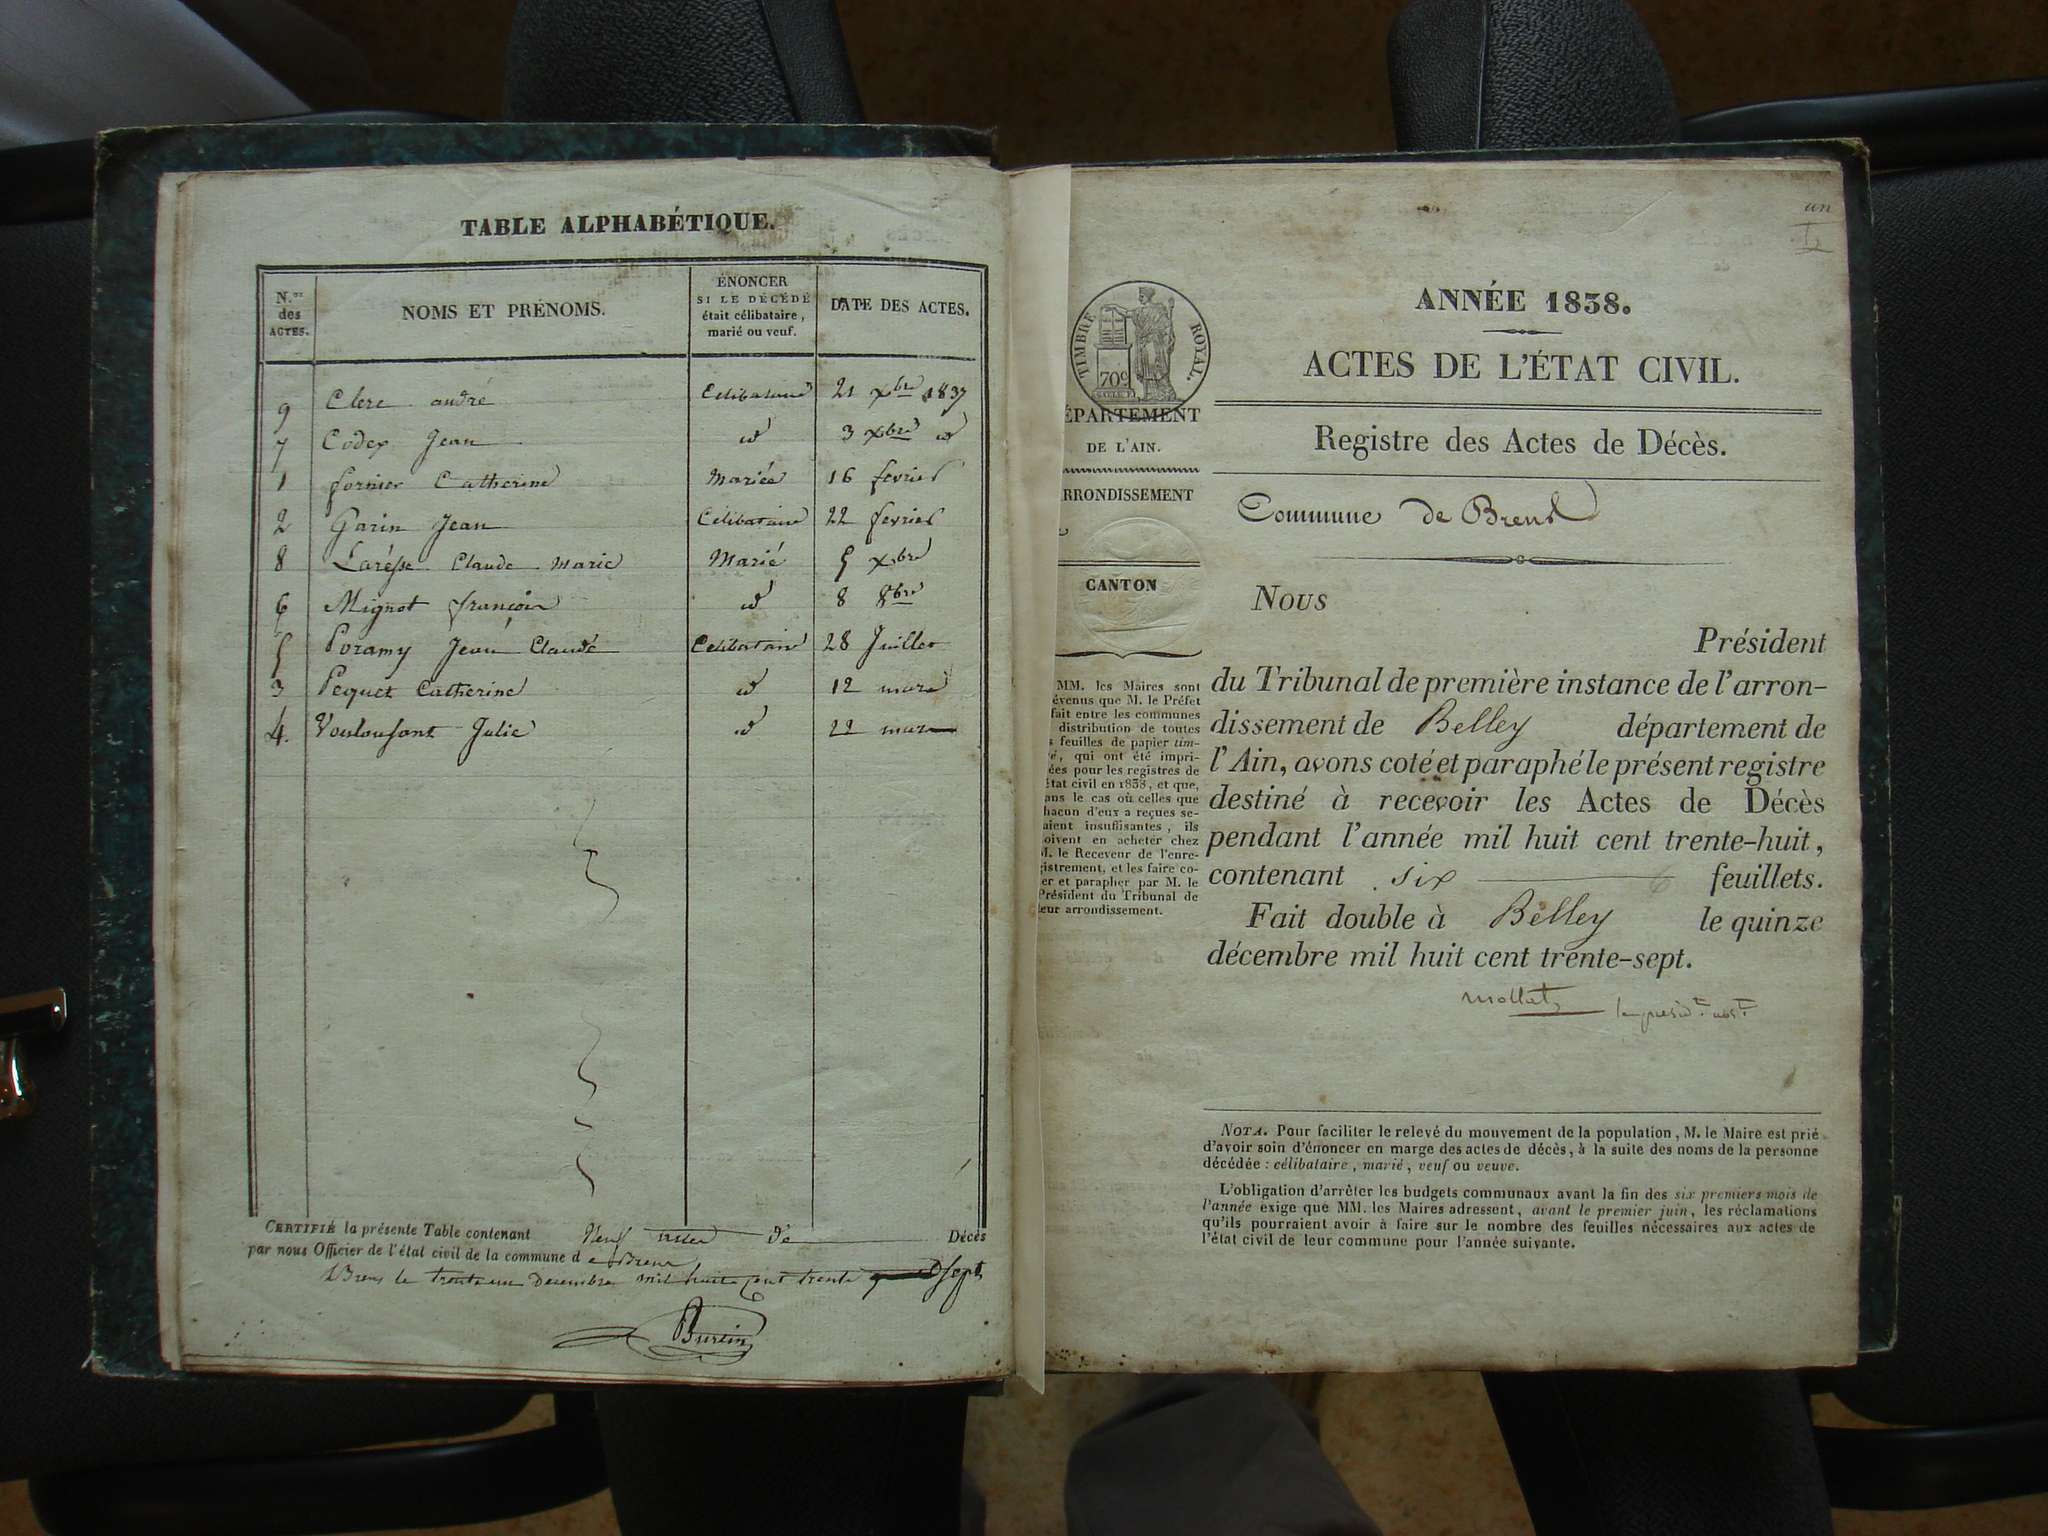 TABLE ALPHABÉTIQUE.
N.os des ACTES.
NOMS ET PRÉNOMS.
ÉNONCER SI LE DÉCÉDÉ était célibataire, marié ou veuf.
DATE DES ACTES.
9 Clerc andré Celibataire 21 xbre 1837
7 Codex Jean id 3 xbre id
1 fornier Catherine Mariée 16 fevrier
2 Garin Jean Célibataire 22 fevrier
8 Claude marie Marié 5 xbre
6 Mignot françois id 8 8bre
5 Poramy Jean Claude Celibataire 28 Juillet
3 Pequet Catherine id 12 mars
4. Julie id 22 mars
CERTIFIÉ la présente Table contenant Neuf actes de Décès
par nous Officier de l'état civil de la commune d e Brens
à Brens le trente un Decembre mil huite cent trente sept
Burtin
un
1
TIMBRE ROYAL.
70c
ANNÉE 1838.
ACTES DE L'ÉTAT CIVIL.
Registre des Actes de Décès.
Commune de Brens
ÉPARTEMENT
DE L'AIN.
RRONDISSEMENT
CANTON
MM. les Maires sont
évenus que M. le Préfet
fait entre les communes
distribution de toutes
s feuilles de papier tim-
ré, qui ont été impri-
ées pour les registres de
état civil en 1838, et que,
ans le cas où celles que
hacun d'eux a reçues se-
aient insuffisantes, ils
oivent en acheter chez
M. le Receveur de l'enre-
gistrement, et les faire co-
er et parapher par M. le
Président du Tribunal de
leur arrondissement.
Nous
Président
du Tribunal de première instance de l'arron-
dissement de Belley département de
l'Ain, avons coté et paraphé le présent registre
destiné à recevoir les Actes de Décès
pendant l'année mil huit cent trente-huit,
contenant six 6 feuillets.
Fait double à Belley le quinze
décembre mil huit cent trente-sept.
mollat le présidt abst
NOTA. Pour faciliter le relevé du mouvement de la population, M. le Maire est prié
d'avoir soin d'énoncer en marge des actes de décès, à la suite des noms de la personne
décédée : célibataire, marié, veuf ou veuve.
L'obligation d'arrêter les budgets communaux avant la fin des six premiers mois de
l'année exige que MM. les Maires adressent, avant le premier juin, les réclamations
qu'ils pourraient avoir à faire sur le nombre des feuilles nécessaires aux actes de
l'état civil de leur commune pour l'année suivante.